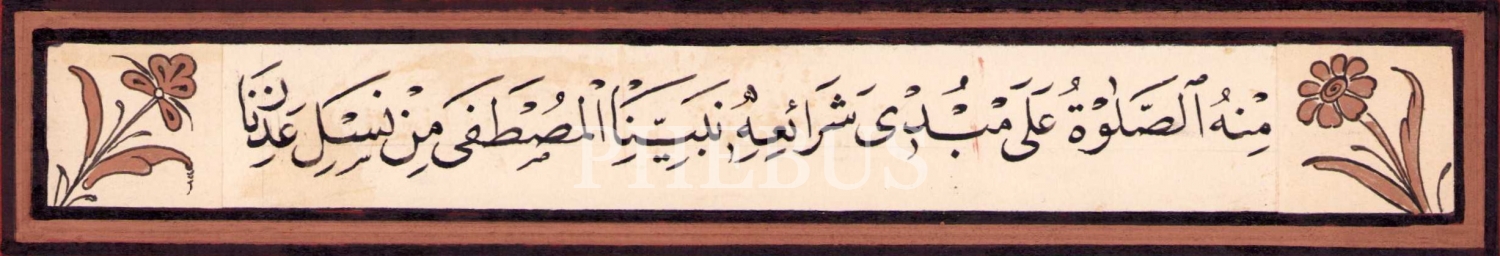 مِنْهُ ٱلصَّلٰوةُ عَلَى مُبْدِى شَرَائِعِهِ نَبِيِّنَا الْمُصْطَفَى مِنْ نَسْلِ عَدْنَنَا
PHEBUS